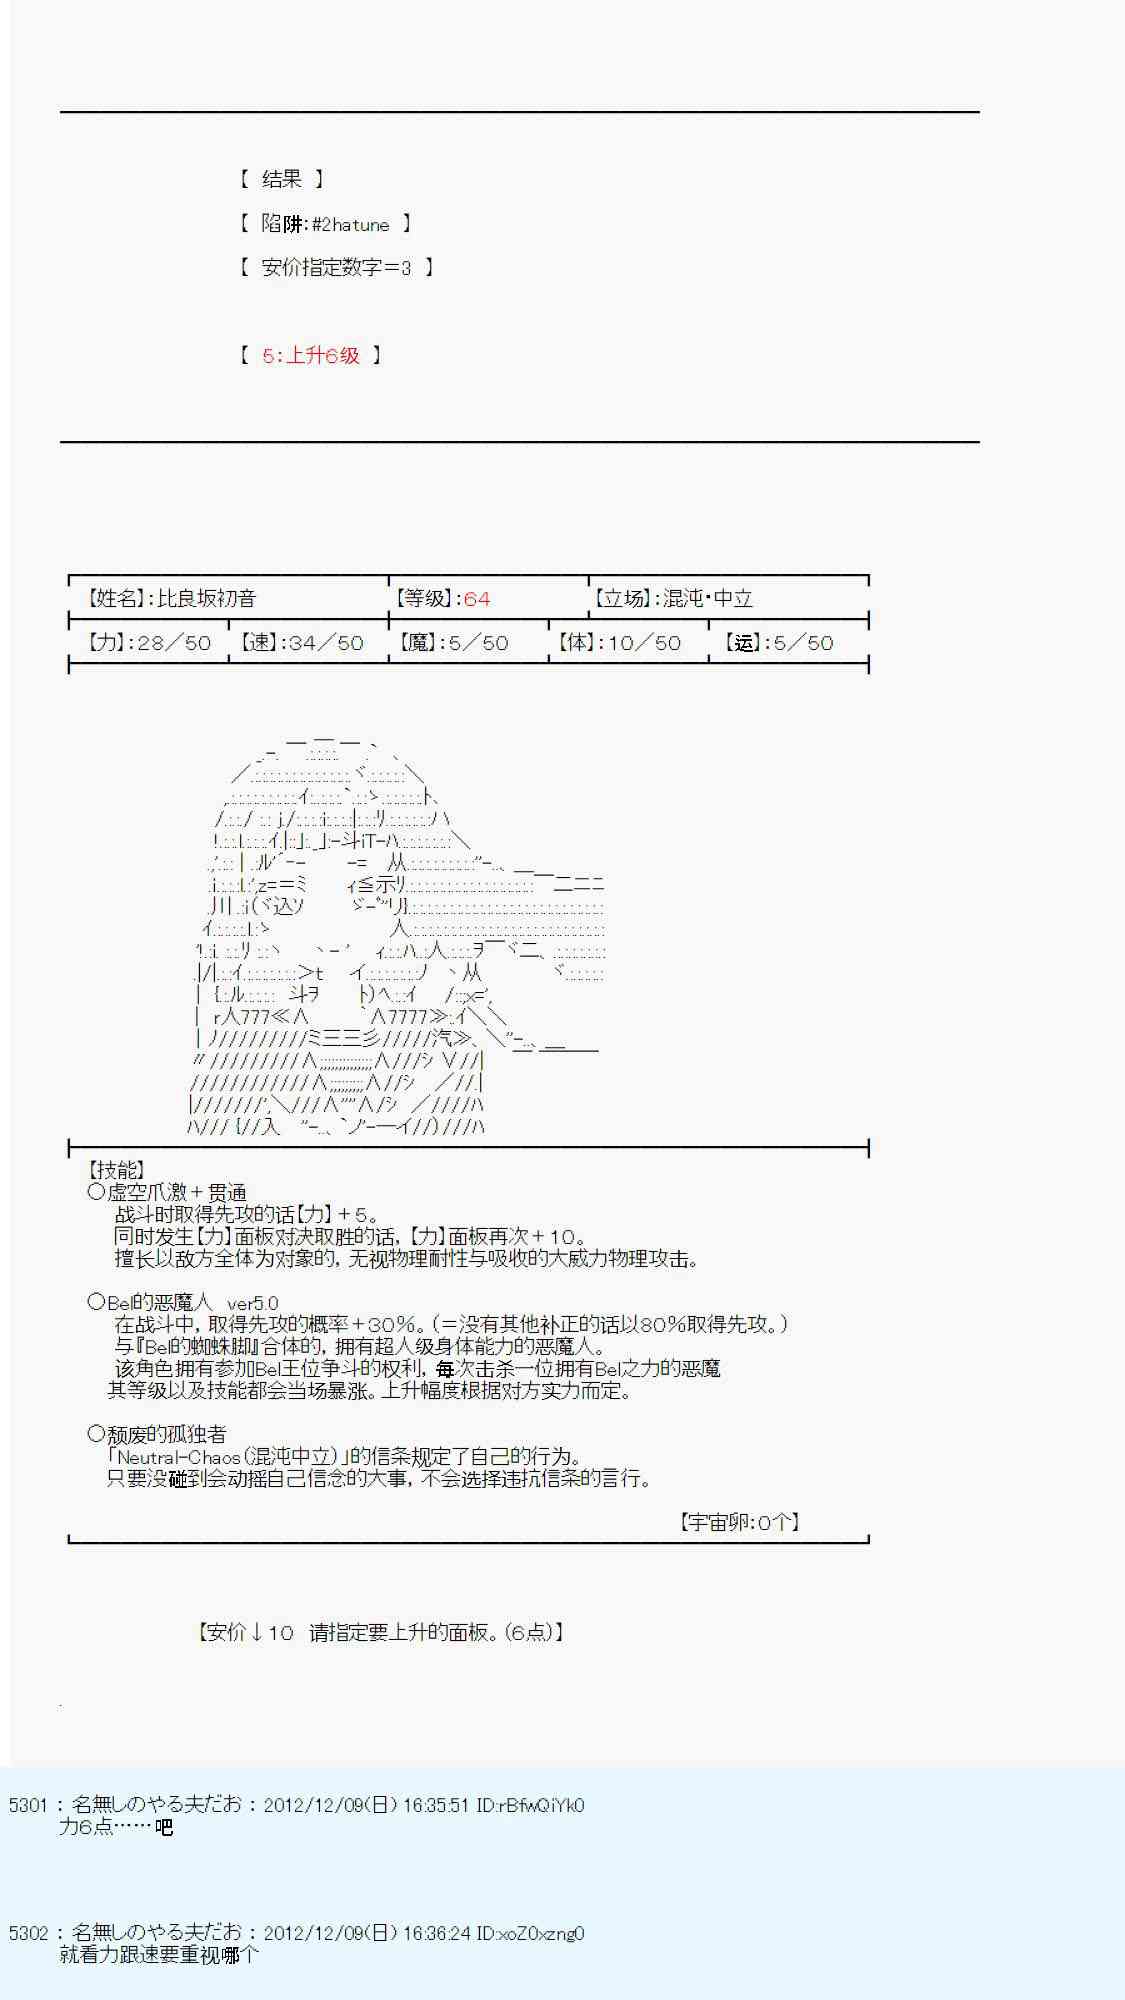 【 结果 】
【 陷阱:#2hatune 】
【 安价指定数字＝3 】
【 5:上升6级 】
【姓名】:比良坂初音 【等级】:64 【立场】:混沌・中立
【力】:28／50 【速】:34／50 【魔】:5／50 【体】:10／50 【运】:5／50
【技能】
○虚空爪激＋贯通
战斗时取得先攻的话【力】＋5。
同时发生【力】面板对决取胜的话,【力】面板再次＋10。
擅长以敌方全体为对象的,无视物理耐性与吸收的大威力物理攻击。
○Bel的恶魔人 ver5.0
在战斗中,取得先攻的概率＋30％。(＝没有其他补正的话以80％取得先攻。)
与『Bel的蜘蛛脚』合体的,拥有超人级身体能力的恶魔人。
该角色拥有参加Bel王位争斗的权利,每次击杀一位拥有Bel之力的恶魔
其等级以及技能都会当场暴涨。上升幅度根据对方实力而定。
○颓废的孤独者
「Neutral-Chaos(混沌中立)」的信条规定了自己的行为。
只要没碰到会动摇自己信念的大事,不会选择违抗信条的言行。
【宇宙卵:0个】
【安价↓10 请指定要上升的面板。(6点)】
5301 : 名無しのやる夫だお : 2012/12/09(日) 16:35:51 ID:rBfwQiYk0
力6点……吧
5302 : 名無しのやる夫だお : 2012/12/09(日) 16:36:24 ID:xoZ0xzng0
就看力跟速要重视哪个